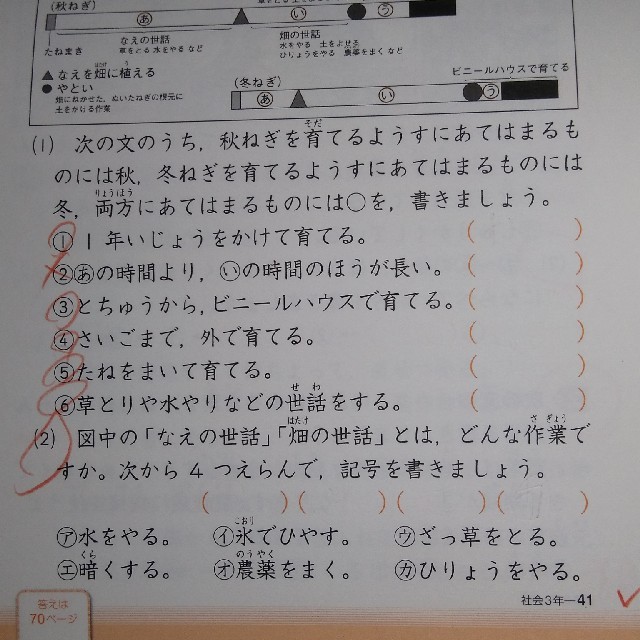 (秋ねぎ)
あ い う
なえの世話 畑の世話
たねまき 草をとる 水をやる など 水をやる 土をよせる
ひりょうをやる 農薬をまく など
▲なえを畑に植える
はたけ う
●やとい
畑にねかせた、ぬいたねぎの根元に
土をかける作業
ビニールハウスで育てる
(冬ねぎ)
あ い う
(1) 次の文のうち，秋ねぎを育てるようすにあてはまるも
そだ
のには秋，冬ねぎを育てるようすにあてはまるものには
りょうほう
冬，両方にあてはまるものには○を，書きましょう。
①1年いじょうをかけて育てる。 ( )
②あの時間より，いの時間のほうが長い。 ( )
③とちゅうから，ビニールハウスで育てる。 ( )
④さいごまで，外で育てる。 ( )
⑤たねをまいて育てる。 ( )
せわ
⑥草とりや水やりなどの世話をする。 ( )
はたけ さぎょう
(2) 図中の「なえの世話」「畑の世話」とは，どんな作業で
すか。次から4つえらんで，記号を書きましょう。
( )( )( )( )
こおり
㋐水をやる。 ㋑氷でひやす。 ㋒ざっ草をとる。
くら のうやく
㋓暗くする。 ㋔農薬をまく。 ㋕ひりょうをやる。
答えは
70ページ
社会3年—41